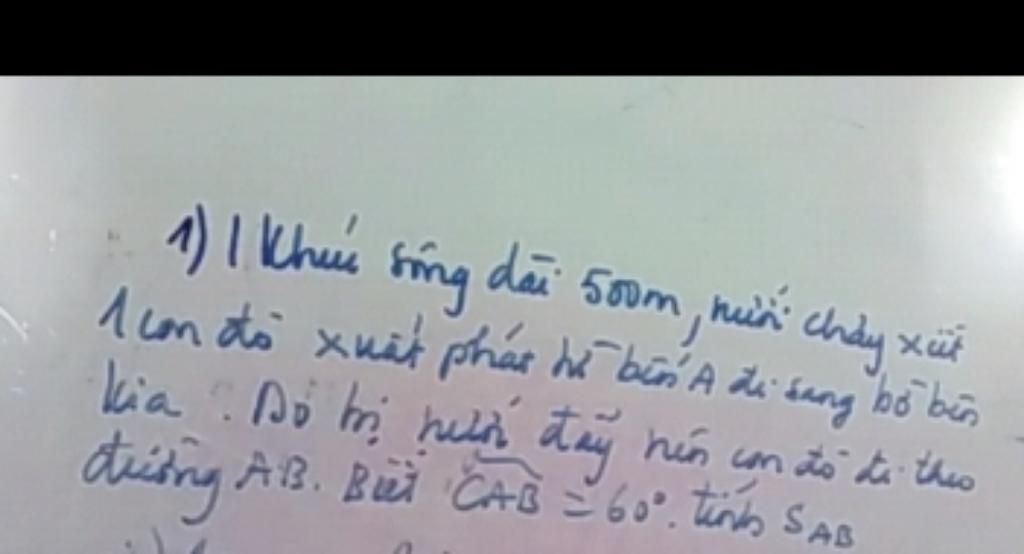 1) 1 khúc sông dài 500m, nước chảy xiết
1 con đò xuất phát từ bến A đi sang bờ bên
kia. Do bị nước đẩy nên con đò đi theo
đường AB. Biết CAB = 60°. tính S AB